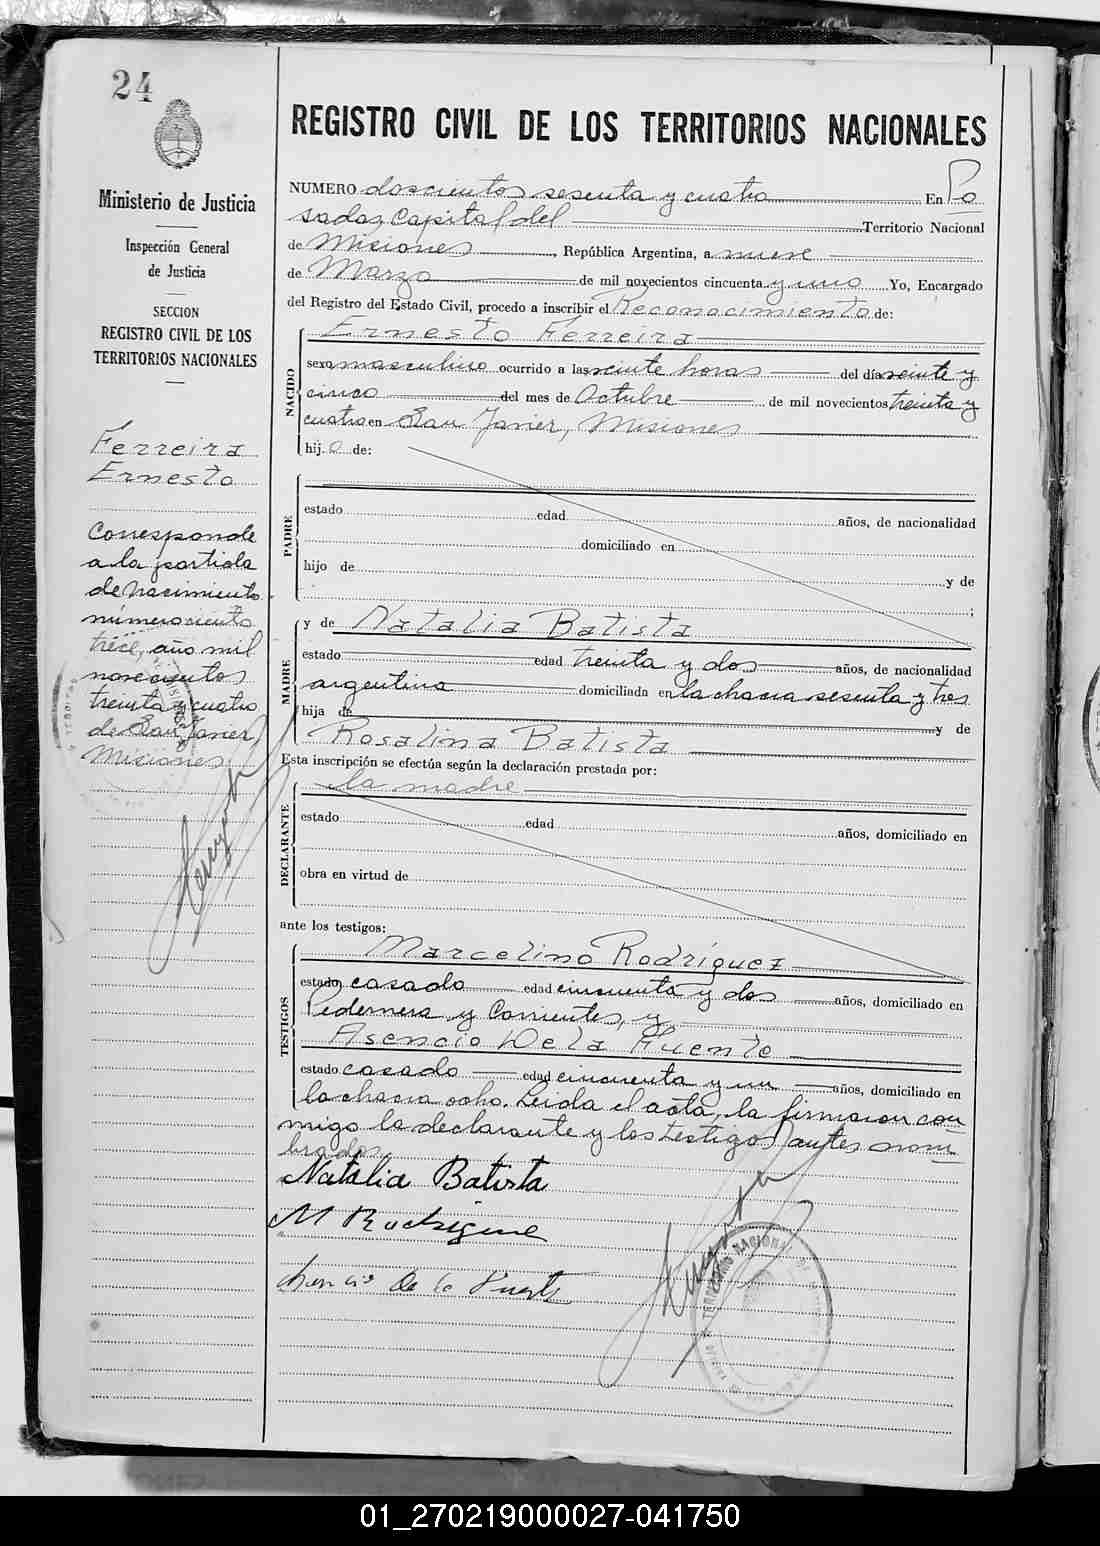 24
REGISTRO CIVIL DE LOS TERRITORIOS NACIONALES
Ministerio de Justicia
Inspección General
de Justicia
SECCION
REGISTRO CIVIL DE LOS
TERRITORIOS NACIONALES
Ferreira
Ernesto
Corresponde
a la partida
de nacimiento
número ciento
trece, año mil
novecientos
treinta y cuatro
de San Javier,
Misiones
NUMERO doscientos sesenta y cuatro En Po
sadas Capital del Territorio Nacional
de Misiones, República Argentina, a nueve
de Marzo de mil novecientos cincuenta y uno Yo, Encargado
del Registro del Estado Civil, procedo a inscribir el Reconocimiento de:
NACIDO
Ernesto Ferreira
sexo masculino ocurrido a las veinte horas del día veinte y
cinco del mes de Octubre de mil novecientos treinta y
cuatro en San Javier, Misiones
hijo de:
PADRE
estado edad años, de nacionalidad
domiciliado en
hijo de y de
;
MADRE
y de Natalia Batista
estado edad treinta y dos años, de nacionalidad
argentina domiciliada en la chacra sesenta y tres
hija de y de
Rosalina Batista
Esta inscripción se efectúa según la declaración prestada por:
DECLARANTE
la madre
estado edad años, domiciliado en
obra en virtud de
ante los testigos:
TESTIGOS
Marcelino Rodríguez
estado casado edad cincuenta y dos años, domiciliado en
Pedernera y Corrientes, y
Asencio De la Fuente
estado casado edad cincuenta y un años, domiciliado en
la chacra ocho. Leida el acta, la firmaron con
migo la declarante y los testigos antes nom
brados
Natalia Batista
M Rodrigue
De la Fuente
TERRITORIO NACIONAL DE
01_270219000027-041750